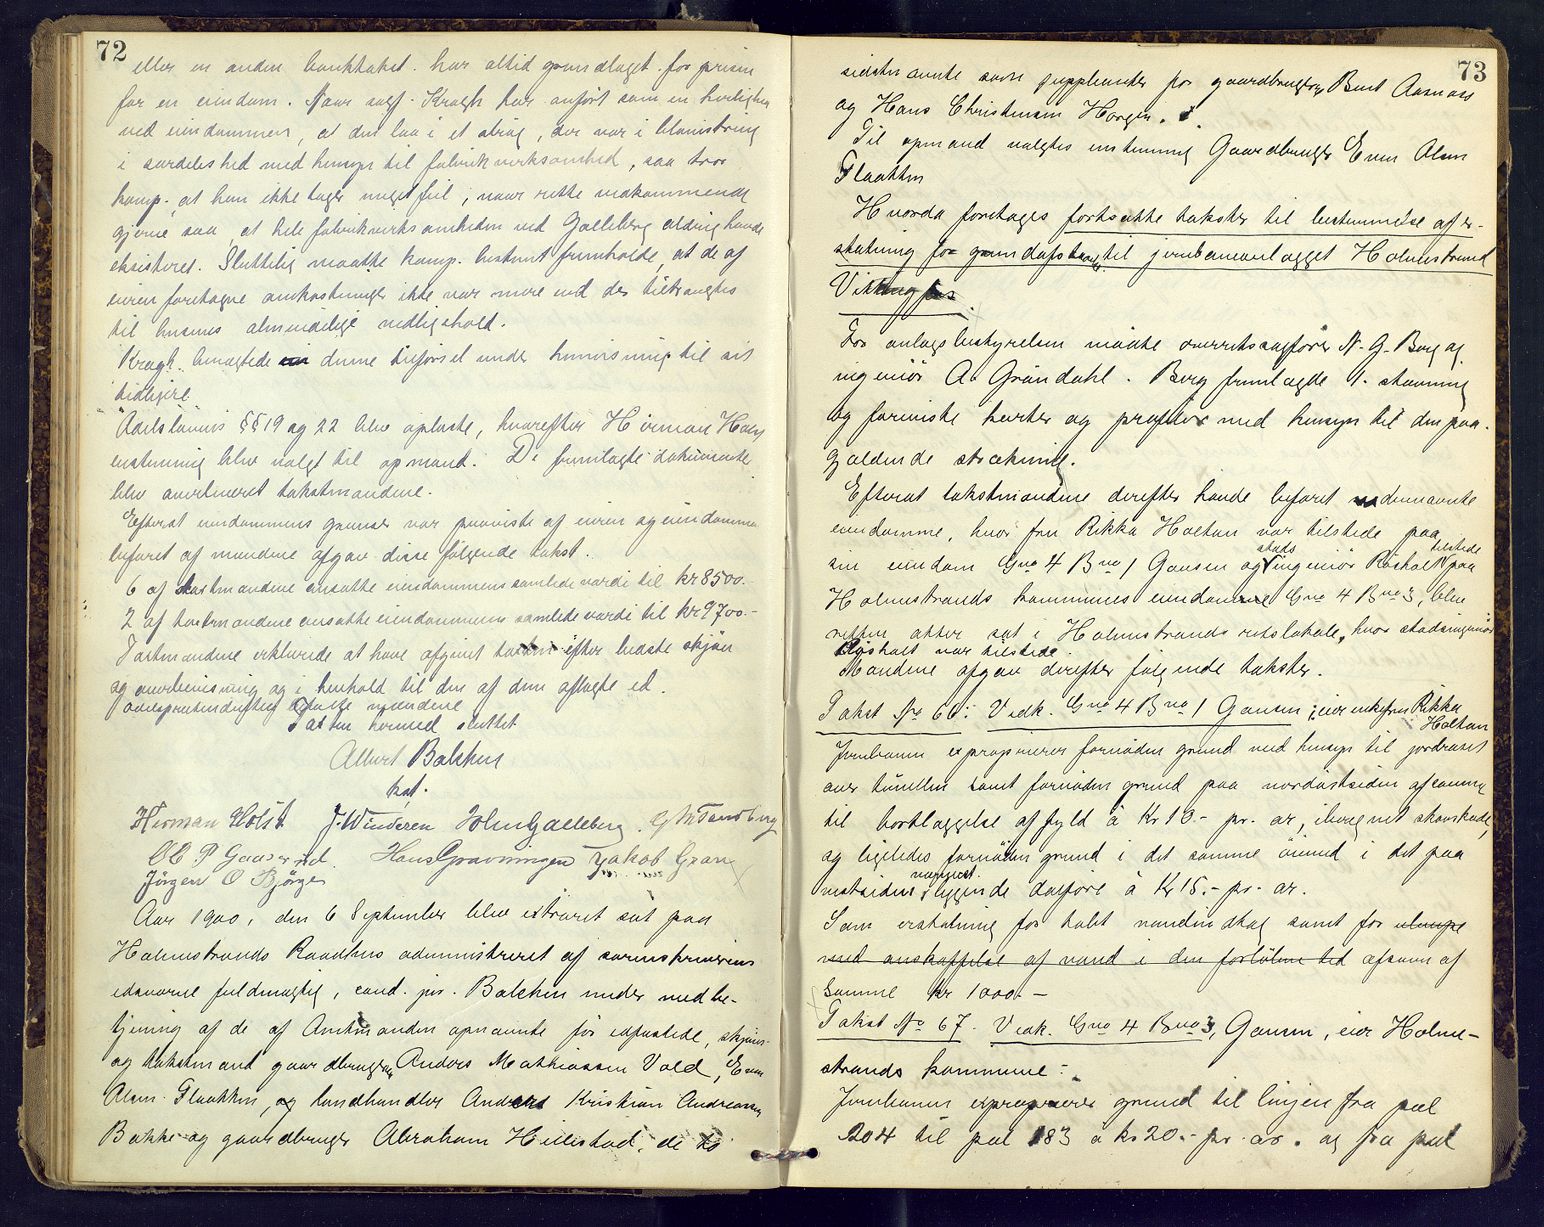 72
eller en anden banktakst. har altid grundlaget for prisen
for en eiendom. Naar sagf. Kragh har anført som en herlighed
ved eiendommen, at den laa i et strøg, der var i blomstring
i særdeleshed med hensyn til fabrikvirksomhed, saa tror
komp., at han ikke tager meget feil, naar rette vedkommende
gjerne saa, at hele fabrikvirksomheden ved Galleberg aldrig havde
eksisteret. Sluttelig maatte komp. bestemt fremholde, at de af
eieren foretagne omkostninger ikke var mere end der tiltrængtes
til husenes almindelige vedligehold.
Kragh benægtede denne tilførsel under henvisning til sit
tidligere.
Aastedslovens §§ 19 og 22 blev oplæste, hvorefter Herman Holst
enstemmig blev valgt til opmand. De fremlagte dokumenter
blev overleveret takstmændene.
Efterat eiendommens grænser var paaviste af eieren og eiendommen
befaret af mændene afgav disse følgende takst.
6 af takstmændene ansatte eiendommens samlede værdi til kr 8500.-
2 af takstmændene ansatte eiendommens samlede værdi til kr 9700.-
Takstmændene erklærede at have afgivet taksten efter bedste skjøn
og overbevisning og i henhold til den af dem aflagte ed.
Taksten hermed sluttet
Albert Balchen
kst.
Herman Holst J. Winderen John Galleberg. G M Tandberg
O E P Gaaserud. Hans Gravningen Jakob Gran
Jørgen O Bjørge
Aar 1900, den 6 September blev extraret sat paa
Holmestrands Raadhus administreret af sorenskriverens
edsvorne fuldmægtig, cand. jur. Balchen under medbe-
tjening af de af Amtmanden opnævnte før edfæstede, skjøns-
og takstmænd gaardbruger Anders Mathiassen Vold, Even
Olsen Flaatten, og landhandler Anders Kristian Andreassen
Bakke og gaardbruger Abraham Hillestad, de to
73
sidstnævnte som suppleanter for gaardbrugerne Bent Aasnæss
og Hans Christensen Horgen.
Til opmand valgtes enstemmig Gaardbruger Even Olsen
Flaatten
Hvorda foretages fortsatte takster til bestemmelse af er-
statning for grundafstaaelse til jernbaneanlægget Holmestrand
Vittingfos.
For anlægsbestyrelsen mødte overretssagfører N. G. Berg og
ingeniør A. Grøndahl. Berg fremlagde 1. stævning
og foreviste karter og profiler med hensyn til den paa-
gjældende strækning.
Efterat takstmændene derefter havde befaret nedennævnte
eiendomme, hvor fru Rikka Holtan var tilstede paa
sin eiendom Gno 4 Bno 1 Gausen og stadsingeniør Røshol tilstede paa
Holmestrands kommunes eiendomme Gno 4 Bno 3, blev
retten atter sat i Holmestrands retslokale, hvor stadsingeniør
Røsholt var tilstede.
Mændene afgav derefter følgende takster.
Takst No 66: Vedk. Gno 4 Bno 1 Gausen, eier enkefru Rikka
Holtan
Jernbanen exproprierer fornøden grund ved hensyn til jordraset
over tunellen samt fornøden grund paa nordøstsiden af samme
til bortlæggelse af fyld à Kr 10.- pr. ar, iberegnet skovskade,
og ligeledes fornøden grund i det samme øiemed i det paa
vestsiden nærmest liggende dalføre à Kr 15.- pr. ar.
Som erstatning for tabt vandindtag samt for ulempe
ved anskaffelse af vand i den forløbne tid afsavn af
samme kr 1000.-
Takst No 67. Vedk. Gno 4 Bno 3, Gausen, eier Holme-
strands kommune:
Jernbanen exproprierer grund til linjen fra pæl
204 til pæl 183 à kr 20.- pr. ar. og fra pæl